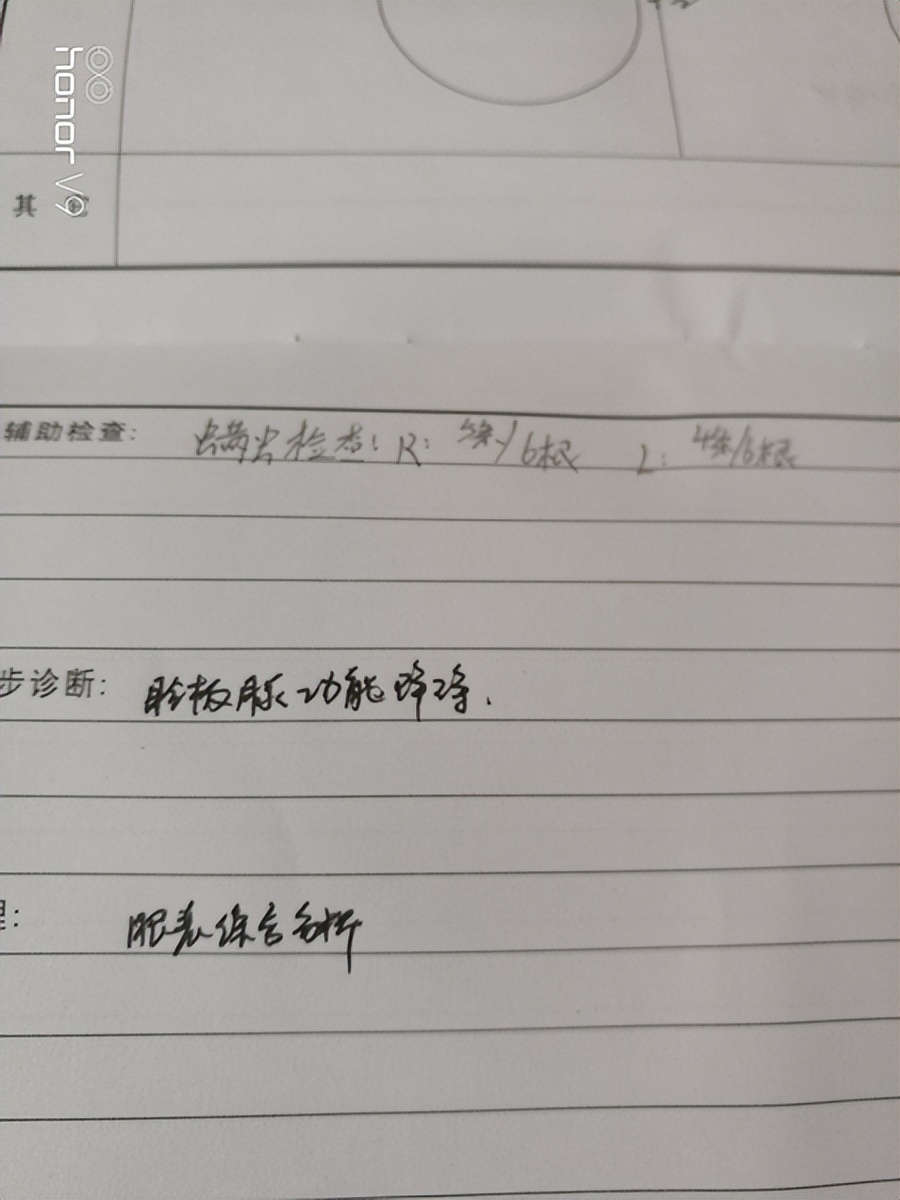 honor V9
其 它
辅助检查: 螨虫检查: R: 5条/6根 L: 4条/6根
步诊断: 睑板腺功能障碍.
理: 眼表综合分析